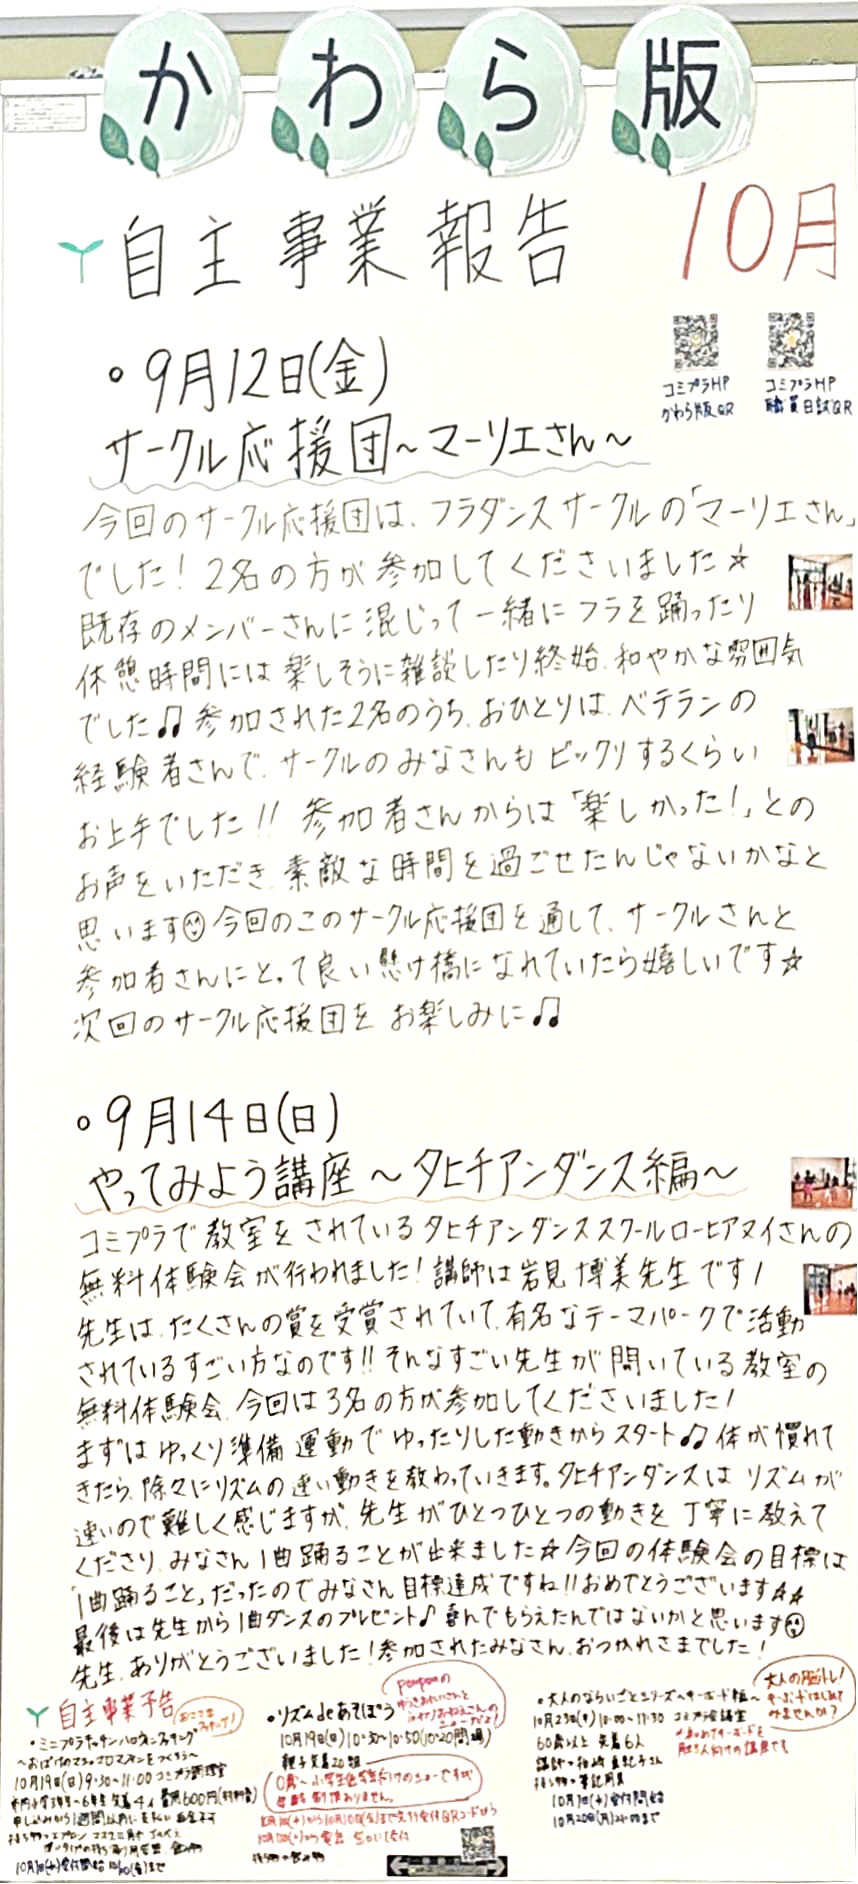 かわら版
自主事業報告
10月
コミプラHP
かわら版QR
コミプラHP
職員日誌QR
・9月12日(金)
サークル応援団~マーリエさん~
今回のサークル応援団は、フラダンスサークルの「マーリエさん」
でした！2名の方が参加してくださいました☆
既存のメンバーさんに混じって一緒にフラを踊ったり
休憩時間には楽しそうに雑談したり終始、和やかな雰囲気
でした♫参加された2名のうち、おひとりは、ベテランの
経験者さんで、サークルのみなさんもビックリするくらい
お上手でした!! 参加者さんからは「楽しかった！」との
お声をいただき、素敵な時間を過ごせたんじゃないかなと
思います☺今回のこのサークル応援団を通して、サークルさんと
参加者さんにとって良い懸け橋になれていたら嬉しいです☆
次回のサークル応援団を お楽しみに♫
・9月14日(日)
やってみよう講座~タヒチアンダンス編~
コミプラで教室をされているタヒチアンダンススクールローヒアヌイさんの
無料体験会が行われました！講師は岩見博美先生です！
先生は、たくさんの賞を受賞されていて、有名なテーマパークで活動
されているすごい方なのです!!そんなすごい先生が開いている教室の
無料体験会、今回は3名の方が参加してくださいました！
まずはゆっくり準備運動でゆったりした動きからスタート♫体が慣れて
きたら、除々にリズムの速い動きを教わっていきます。タヒチアンダンスはリズムが
速いので難しく感じますが、先生がひとつひとつの動きを丁寧に教えて
くださり、みなさん1曲踊ることが出来ました☆今回の体験会の目標は
「1曲踊ること」だったのでみなさん目標達成ですね!!おめでとうございます☆☆
最後は先生から1曲ダンスのプレゼント♪喜んでもらえたんではないかと思います☺
先生、ありがとうございました！参加されたみなさん、おつかれさまでした！
自主事業予告
・ミニプラキッチン ハロウィンクッキング
10月19日(日)9:30~11:00 コミプラ調理室
・リズムdeあそぼう
10月19日(日)10:30~10:50(10:20開場)
親子先着20組
・大人のならいごとシリーズ~キーボード編~
10月23日(木)10:00~11:30 コミプラ会議室
60歳以上 先着6人
持ち物→筆記用具
10月1日(水)受付開始
大人の脳トレ！